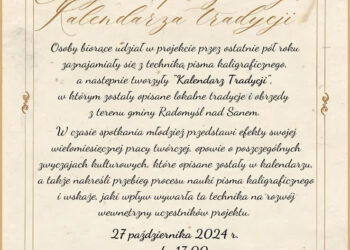 Kalendarza tradycji
Osoby biorące udział w projekcie przez ostatnie pół roku
zaznajamiały się z techniką pisma kaligraficznego,
a następnie tworzyły "Kalendarz Tradycji",
w którym zostały opisane lokalne tradycje i obrzędy
z terenu gminy Radomyśl nad Sanem.
W czasie spotkania młodzież przedstawi efekty swojej
wielomiesięcznej pracy twórczej, opowie o poszczególnych
zwyczajach kulturowych, które opisane zostały w kalendarzu,
a także nakreśli przebieg procesu nauki pisma kaligraficznego
i wskaże, jaki wpływ wywarła ta technika na rozwój
wewnętrzny uczestników projektu.
27 października 2024 r.